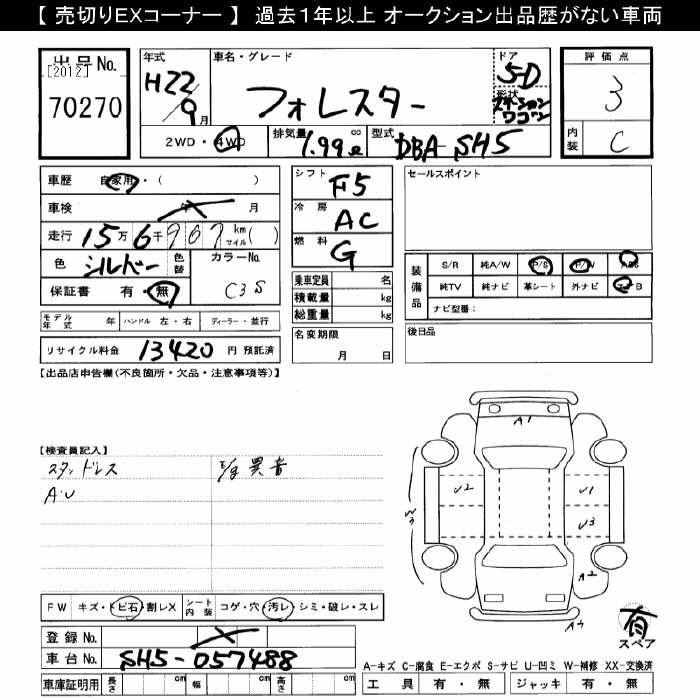 【 売切りEXコーナー 】 過去1年以上 オークション出品歴がない車両
出品No.
[2012]
70270
年式
H22/9月
車名・グレード
フォレスター
ドア
5-D
形状
ステーションワゴン
評価点
3
内装
C
2WD・4WD
排気量
1.99
cc
ℓ
型式
DBA-SH5
車歴 自家用・( )
車検 年 月
走行 15万6千907 km マイル( )
色 シルバー 色替
カラーNo.
C3S
保証書 有・無
モデル年式 年 ハンドル 左・右 ディーラー・並行
リサイクル料金 13420 円 預託済
シフト
F5
冷房
AC
燃料
G
乗車定員 名
積載量 kg
総重量 kg
名変期限
月 日
セールスポイント
装備品
S/R 純A/W P/S P/W ABS
純TV 純ナビ 革シート 外ナビ エアB
ナビ型番:
後日品
【出品店申告欄(不良箇所・欠品・注意事項等)】
【検査員記入】
スタッドレス
A・U
E/g 異音
A1
U2
U1
U3
W3
A2
A3
FW キズ・トビ石・割レX
シート内装 コゲ・穴・汚レ・シミ・破レ・スレ
登録No.
車台No. SH5-057488
車庫証明用 長さ cm 幅 cm 高さ cm
有
スペア
A-キズ C-腐食 E-エクボ S-サビ U-凹ミ W-補修 XX-交換済
工具 有・無 ジャッキ 有・無